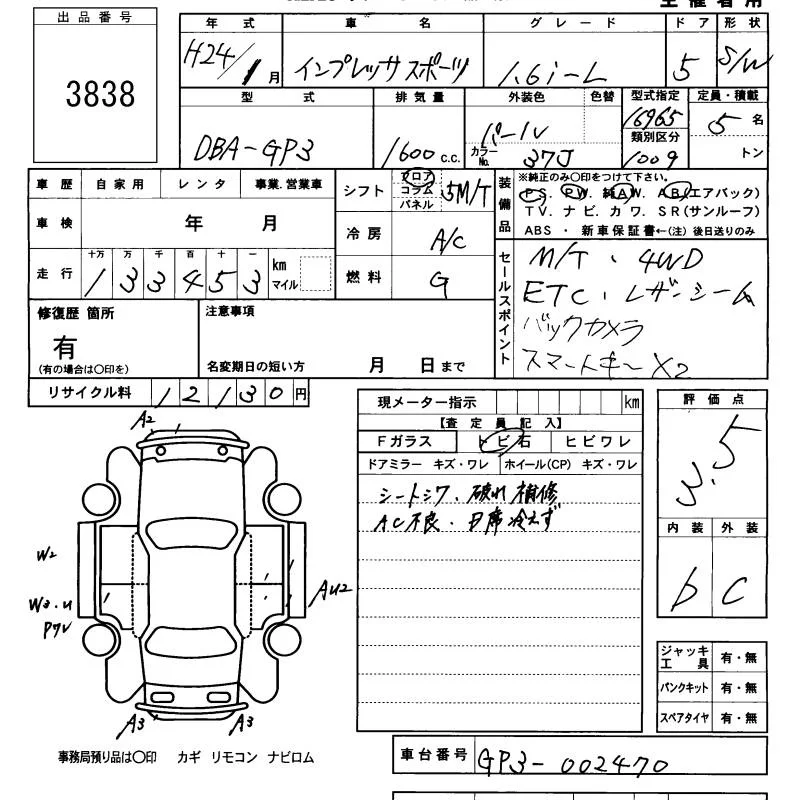 出品番号
3838
年式 車名 グレード ドア 形状
H24/1月 インプレッサスポーツ 1.6i-L 5 S/W
型式 排気量 外装色 色替 型式指定 定員・積載
DBA-GP3 1600 C.C. パール カラーNo. 37J 16965 5名
類別区分 1009 トン
車歴 自家用 レンタ 事業.営業車
シフト フロア コラム パネル 5M/T
車検 年 月
冷房 A/C
走行 十万 万 千 百 十 一 km マイル
133453
燃料 G
装備品
※純正のみ〇印をつけて下さい。
PS. PW. 純AW. AB(エアバック)
TV. ナビ. カワ. SR(サンルーフ)
ABS ・ 新車保証書←(注) 後日送りのみ
セールスポイント
M/T・4WD
ETC・レザーシーム
バックカメラ
スマートキーX2
修復歴 箇所
有
(有の場合は〇印を)
注意事項
名変期日の短い方 月 日まで
リサイクル料 12130円
現メーター指示 km
【査定員記入】
Fガラス トビ石 ヒビワレ
ドアミラー キズ・ワレ ホイール(CP) キズ・ワレ
シートシワ、破れ補修
AC不良・日席冷えず
評価点
3.5
内装 外装
b C
A2
W2
W2.U
Pアリ
AU2
A3 A3
ジャッキ工具 有・無
パンクキット 有・無
スペアタイヤ 有・無
事務局預り品は〇印 カギ リモコン ナビロム
車台番号 GP3-002470